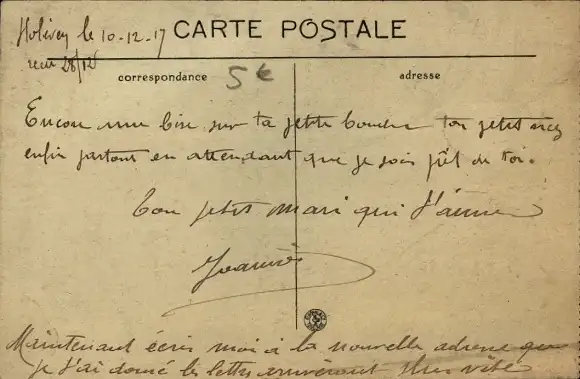 le 10-12-17
CARTE POSTALE
28/12
correspondance
5€
adresse
Encore une bise sur ta petite bouche ton petit nez
enfin partout en attendant que je sois près de toi.
Ton petit mari qui t'aime
Maintenant écris moi à la nouvelle adresse que
je t'ai donné les lettres arriveront plus vite